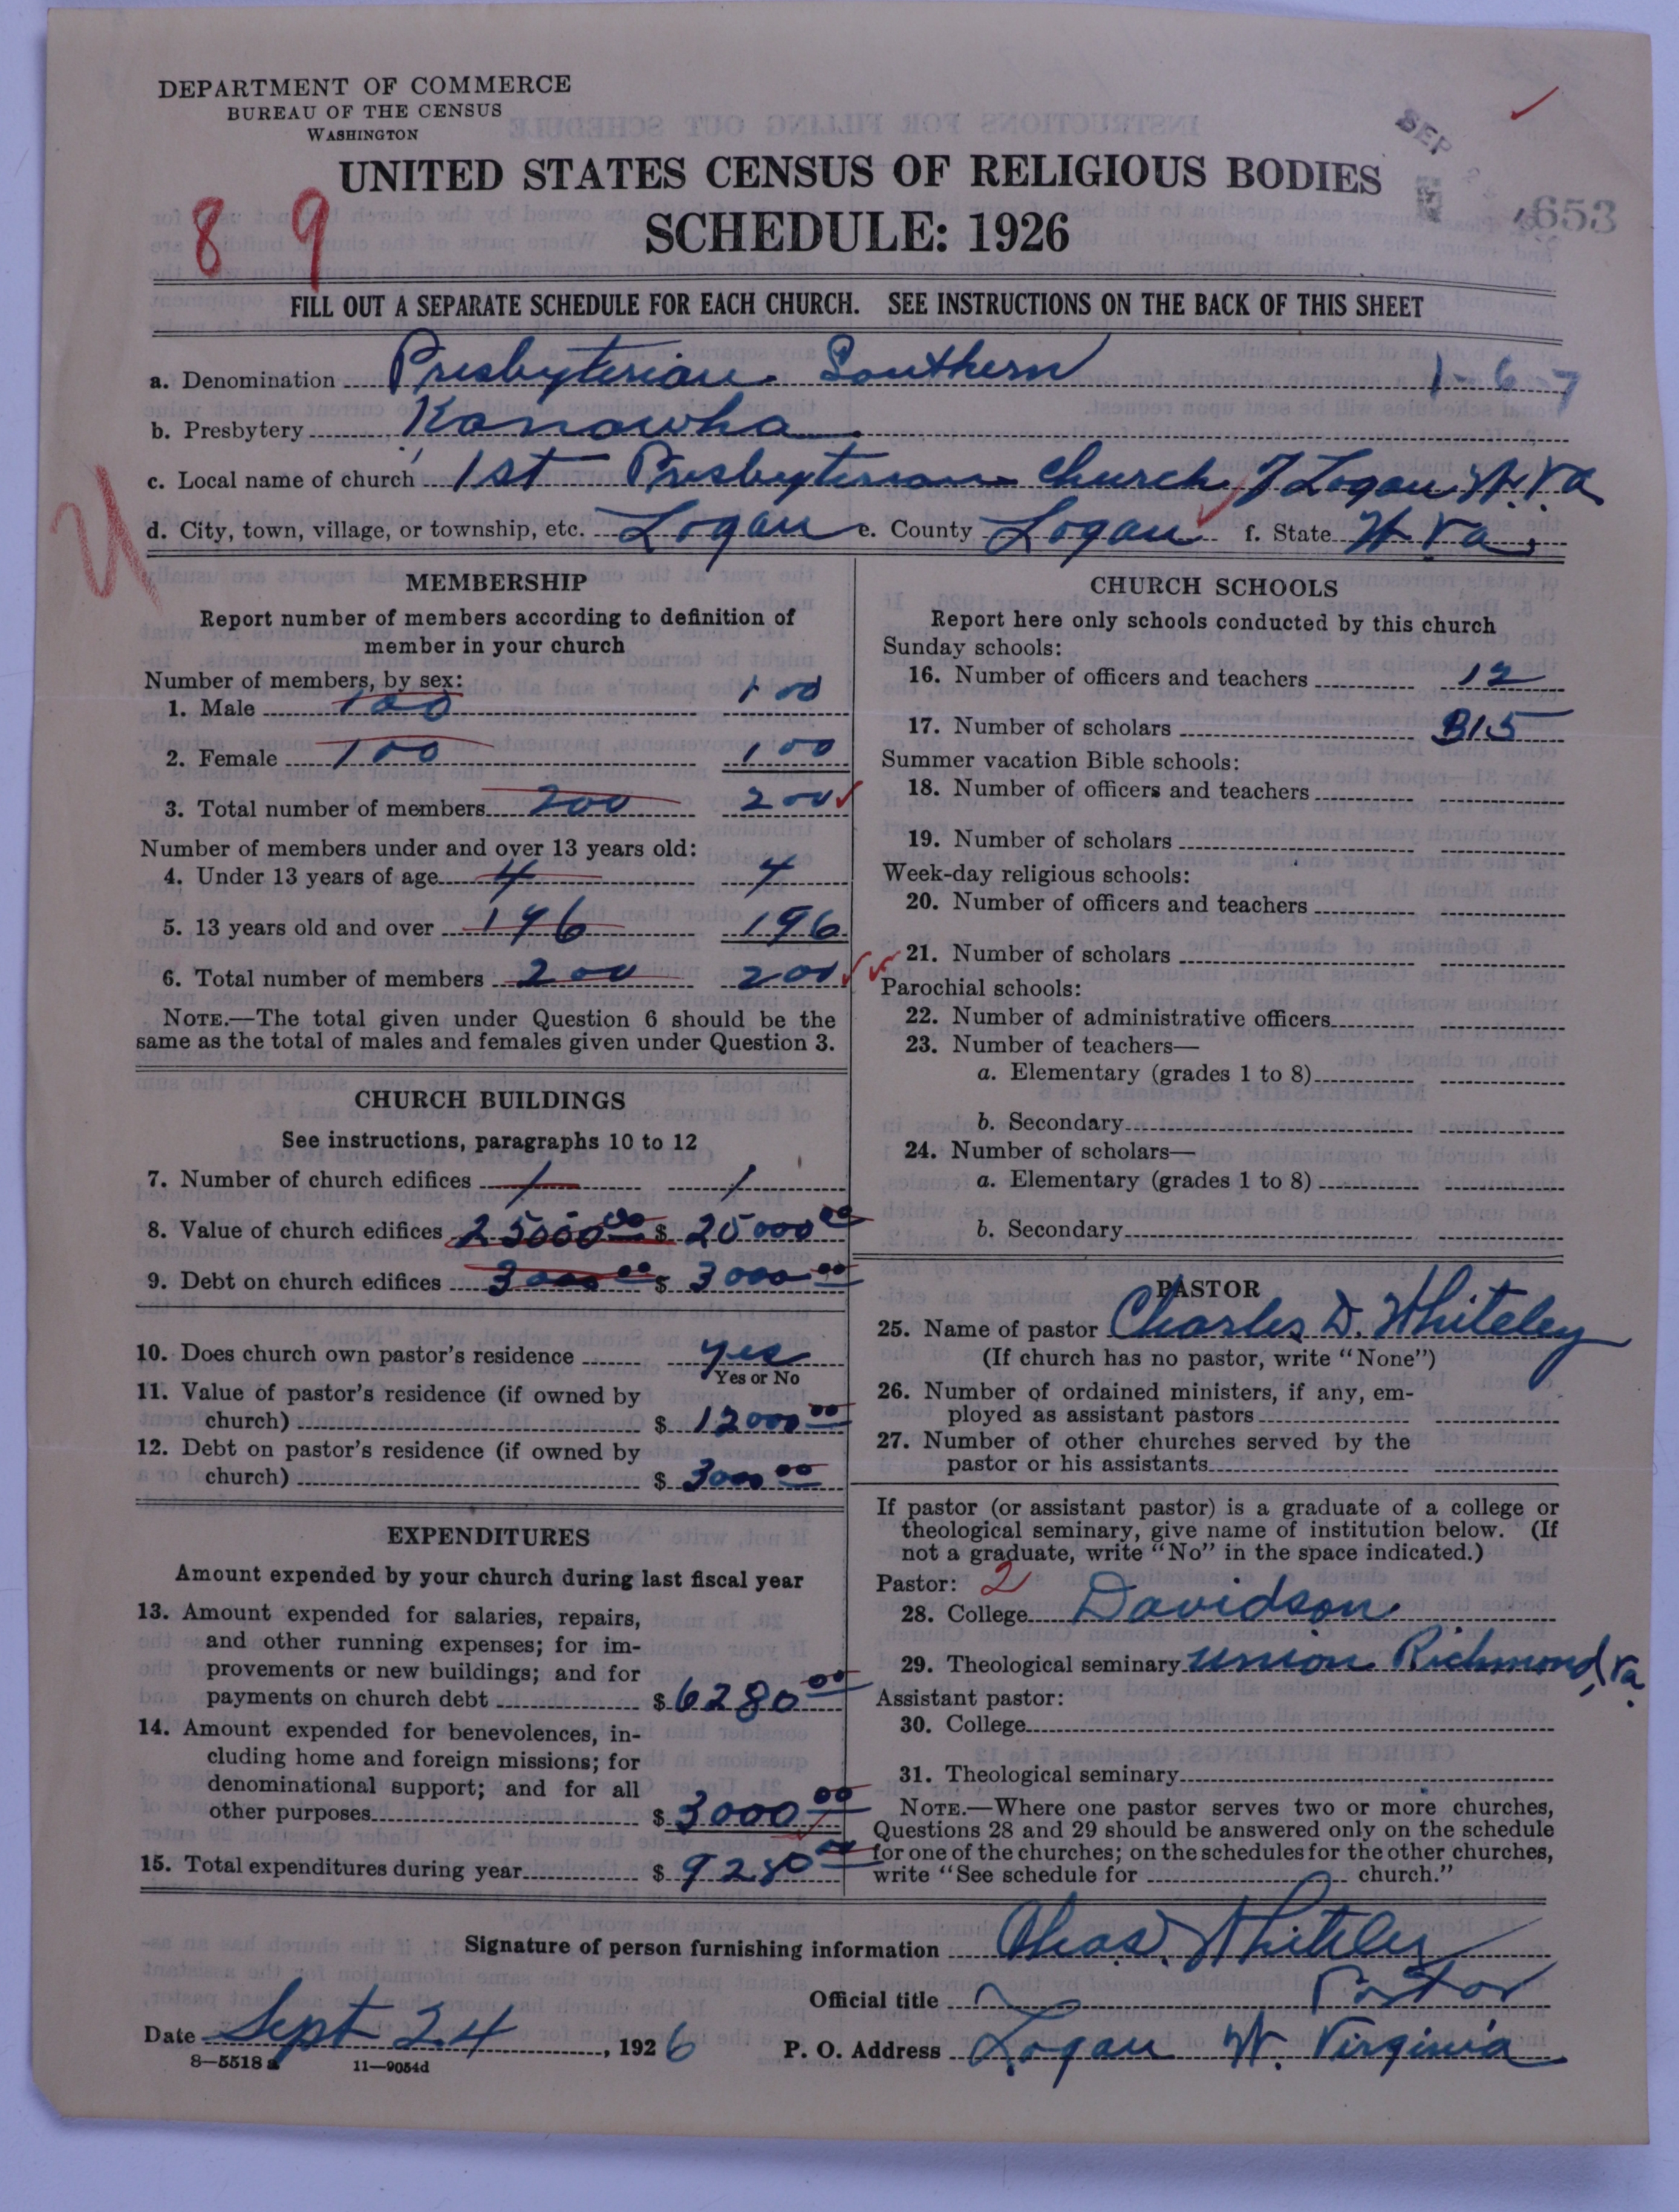 DEPARTMENT OF COMMERCE
BUREAU OF THE CENSUS
WASHINGTON
UNITED STATES CENSUS OF RELIGIOUS BODIES
SCHEDULE: 1926
8 9
SEP
653
FILL OUT A SEPARATE SCHEDULE FOR EACH CHURCH. SEE INSTRUCTIONS ON THE BACK OF THIS SHEET
a. Denomination Presbyterian Southern 1-6 7
b. Presbytery Kanawha
c. Local name of church 1st Presbyterian Church of Logan W. Va
d. City, town, village, or township, etc. Logan e. County Logan f. State W. Va.
MEMBERSHIP
Report number of members according to definition of
member in your church
Number of members, by sex:
1. Male 100 100
2. Female 100 100
3. Total number of members 200 200
Number of members under and over 13 years old:
4. Under 13 years of age 4 4
5. 13 years old and over 196 196
6. Total number of members 200 200
NOTE.—The total given under Question 6 should be the
same as the total of males and females given under Question 3.
CHURCH BUILDINGS
See instructions, paragraphs 10 to 12
7. Number of church edifices 1 1
8. Value of church edifices 25000 00 $ 25000 00
9. Debt on church edifices 3000 00 $ 3000 00
10. Does church own pastor's residence yes
Yes or No
11. Value of pastor's residence (if owned by
church) $ 12000 00
12. Debt on pastor's residence (if owned by
church) $ 3000 00
EXPENDITURES
Amount expended by your church during last fiscal year
13. Amount expended for salaries, repairs,
and other running expenses; for im-
provements or new buildings; and for
payments on church debt $ 6280 00
14. Amount expended for benevolences, in-
cluding home and foreign missions; for
denominational support; and for all
other purposes $ 3000 00
15. Total expenditures during year $ 9280 00
CHURCH SCHOOLS
Report here only schools conducted by this church
Sunday schools:
16. Number of officers and teachers 12
17. Number of scholars 315
Summer vacation Bible schools:
18. Number of officers and teachers
19. Number of scholars
Week-day religious schools:
20. Number of officers and teachers
21. Number of scholars
Parochial schools:
22. Number of administrative officers
23. Number of teachers—
a. Elementary (grades 1 to 8)
b. Secondary
24. Number of scholars—
a. Elementary (grades 1 to 8)
b. Secondary
PASTOR
25. Name of pastor Charles D. Whiteley
(If church has no pastor, write "None")
26. Number of ordained ministers, if any, em-
ployed as assistant pastors
27. Number of other churches served by the
pastor or his assistants
If pastor (or assistant pastor) is a graduate of a college or
theological seminary, give name of institution below. (If
not a graduate, write "No" in the space indicated.)
Pastor: 2
28. College Davidson
29. Theological seminary Union Richmond, Va.
Assistant pastor:
30. College
31. Theological seminary
NOTE.—Where one pastor serves two or more churches,
Questions 28 and 29 should be answered only on the schedule
for one of the churches; on the schedules for the other churches,
write "See schedule for church."
Signature of person furnishing information Chas. D. Whiteley
Official title Pastor
Date Sept 24, 1926 P. O. Address Logan W. Virginia
8—5518 a 11—9054d